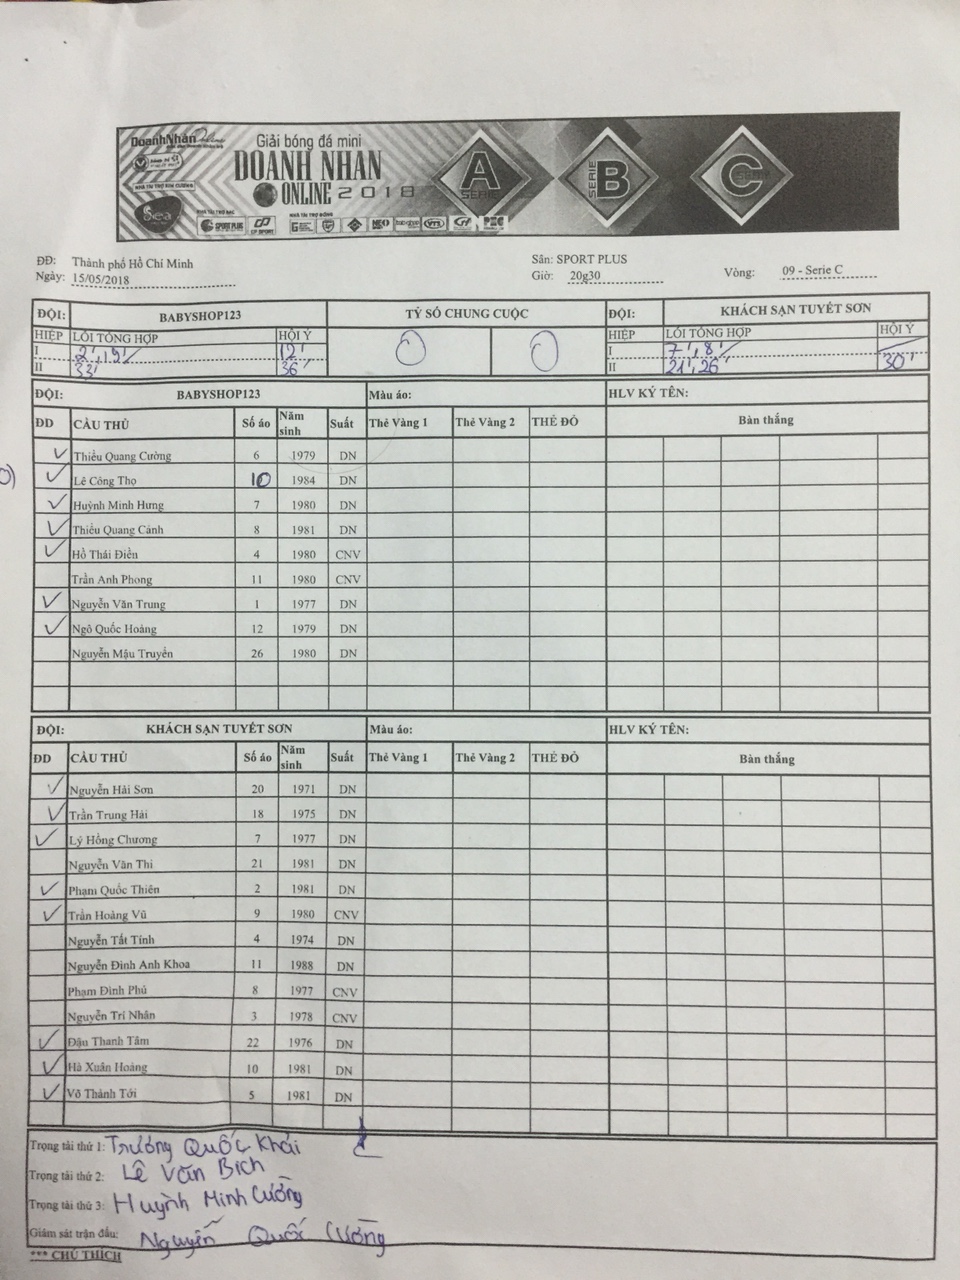 DoanhNhân Online
Giải bóng đá mini
DOANH NHAN
ONLINE 2018
A
SERIE
SERIE
B
C
NHÀ TÀI TRỢ KIM CƯƠNG
Sea
NHÀ TÀI TRỢ BẠC
NHÀ TÀI TRỢ ĐỒNG
SPORT PLUS
ĐĐ: Thành phố Hồ Chí Minh Sân: SPORT PLUS
Ngày: 15/05/2018 Giờ: 20g30 Vòng: 09 - Serie C
ĐỘI: BABYSHOP123 TỶ SỐ CHUNG CUỘC ĐỘI: KHÁCH SẠN TUYẾT SƠN
HIỆP LỖI TỔNG HỢP HỘI Ý 0 0 HIỆP LỖI TỔNG HỢP HỘI Ý
I 12' I 7', 8'
II 33' 36' II 21', 26' 30'
ĐỘI: BABYSHOP123 Màu áo: HLV KÝ TÊN:
ĐD CẦU THỦ Số áo Năm sinh Suất Thẻ Vàng 1 Thẻ Vàng 2 THẺ ĐỎ Bàn thắng
Thiều Quang Cường 6 1979 DN
Lê Công Thọ 10 1984 DN
Huỳnh Minh Hưng 7 1980 DN
Thiều Quang Cảnh 8 1981 DN
Hồ Thái Điền 4 1980 CNV
Trần Anh Phong 11 1980 CNV
Nguyễn Văn Trung 1 1977 DN
Ngô Quốc Hoàng 12 1979 DN
Nguyễn Mậu Truyền 26 1980 DN
ĐỘI: KHÁCH SẠN TUYẾT SƠN Màu áo: HLV KÝ TÊN:
ĐD CẦU THỦ Số áo Năm sinh Suất Thẻ Vàng 1 Thẻ Vàng 2 THẺ ĐỎ Bàn thắng
Nguyễn Hải Sơn 20 1971 DN
Trần Trung Hải 18 1975 DN
Lý Hồng Chương 7 1977 DN
Nguyễn Văn Thi 21 1981 DN
Phạm Quốc Thiên 2 1981 DN
Trần Hoàng Vũ 9 1980 CNV
Nguyễn Tất Tính 4 1974 DN
Nguyễn Đình Anh Khoa 11 1988 DN
Phạm Đình Phú 8 1977 CNV
Nguyễn Trí Nhân 3 1978 CNV
Đậu Thanh Tâm 22 1976 DN
Hà Xuân Hoàng 10 1981 DN
Võ Thành Tới 5 1981 DN
Trọng tài thứ 1: Trương Quốc Khải
Trọng tài thứ 2: Lê Văn Bích
Trọng tài thứ 3: Huỳnh Minh Cường
Giám sát trận đấu: Nguyễn Quốc Cường
*** CHÚ THÍCH